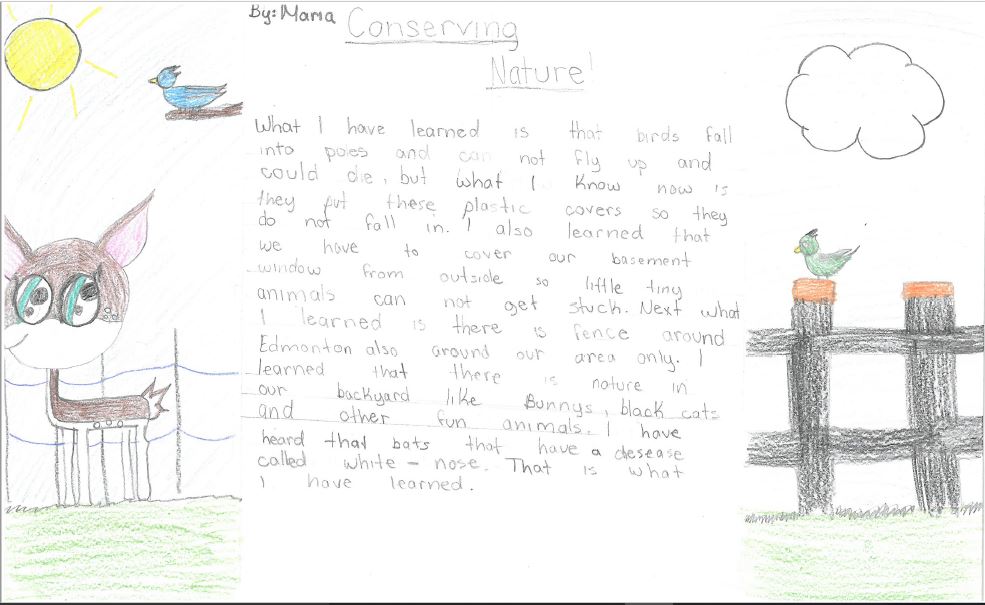 By: Maria
Conserving
Nature!
What I have learned is that birds fall
into poles and can not fly up and
could die, but what I know now is
they put these plastic covers so they
do not fall in. I also learned that
we have to cover our basement
window from outside so little tiny
animals can not get stuck. Next what
I learned is there is fence around
Edmonton also around our area only. I
learned that there is nature in
our backyard like Bunnys, black cats
and other fun animals. I have
heard that bats that have a desease
called white - nose. That is what
I have learned.